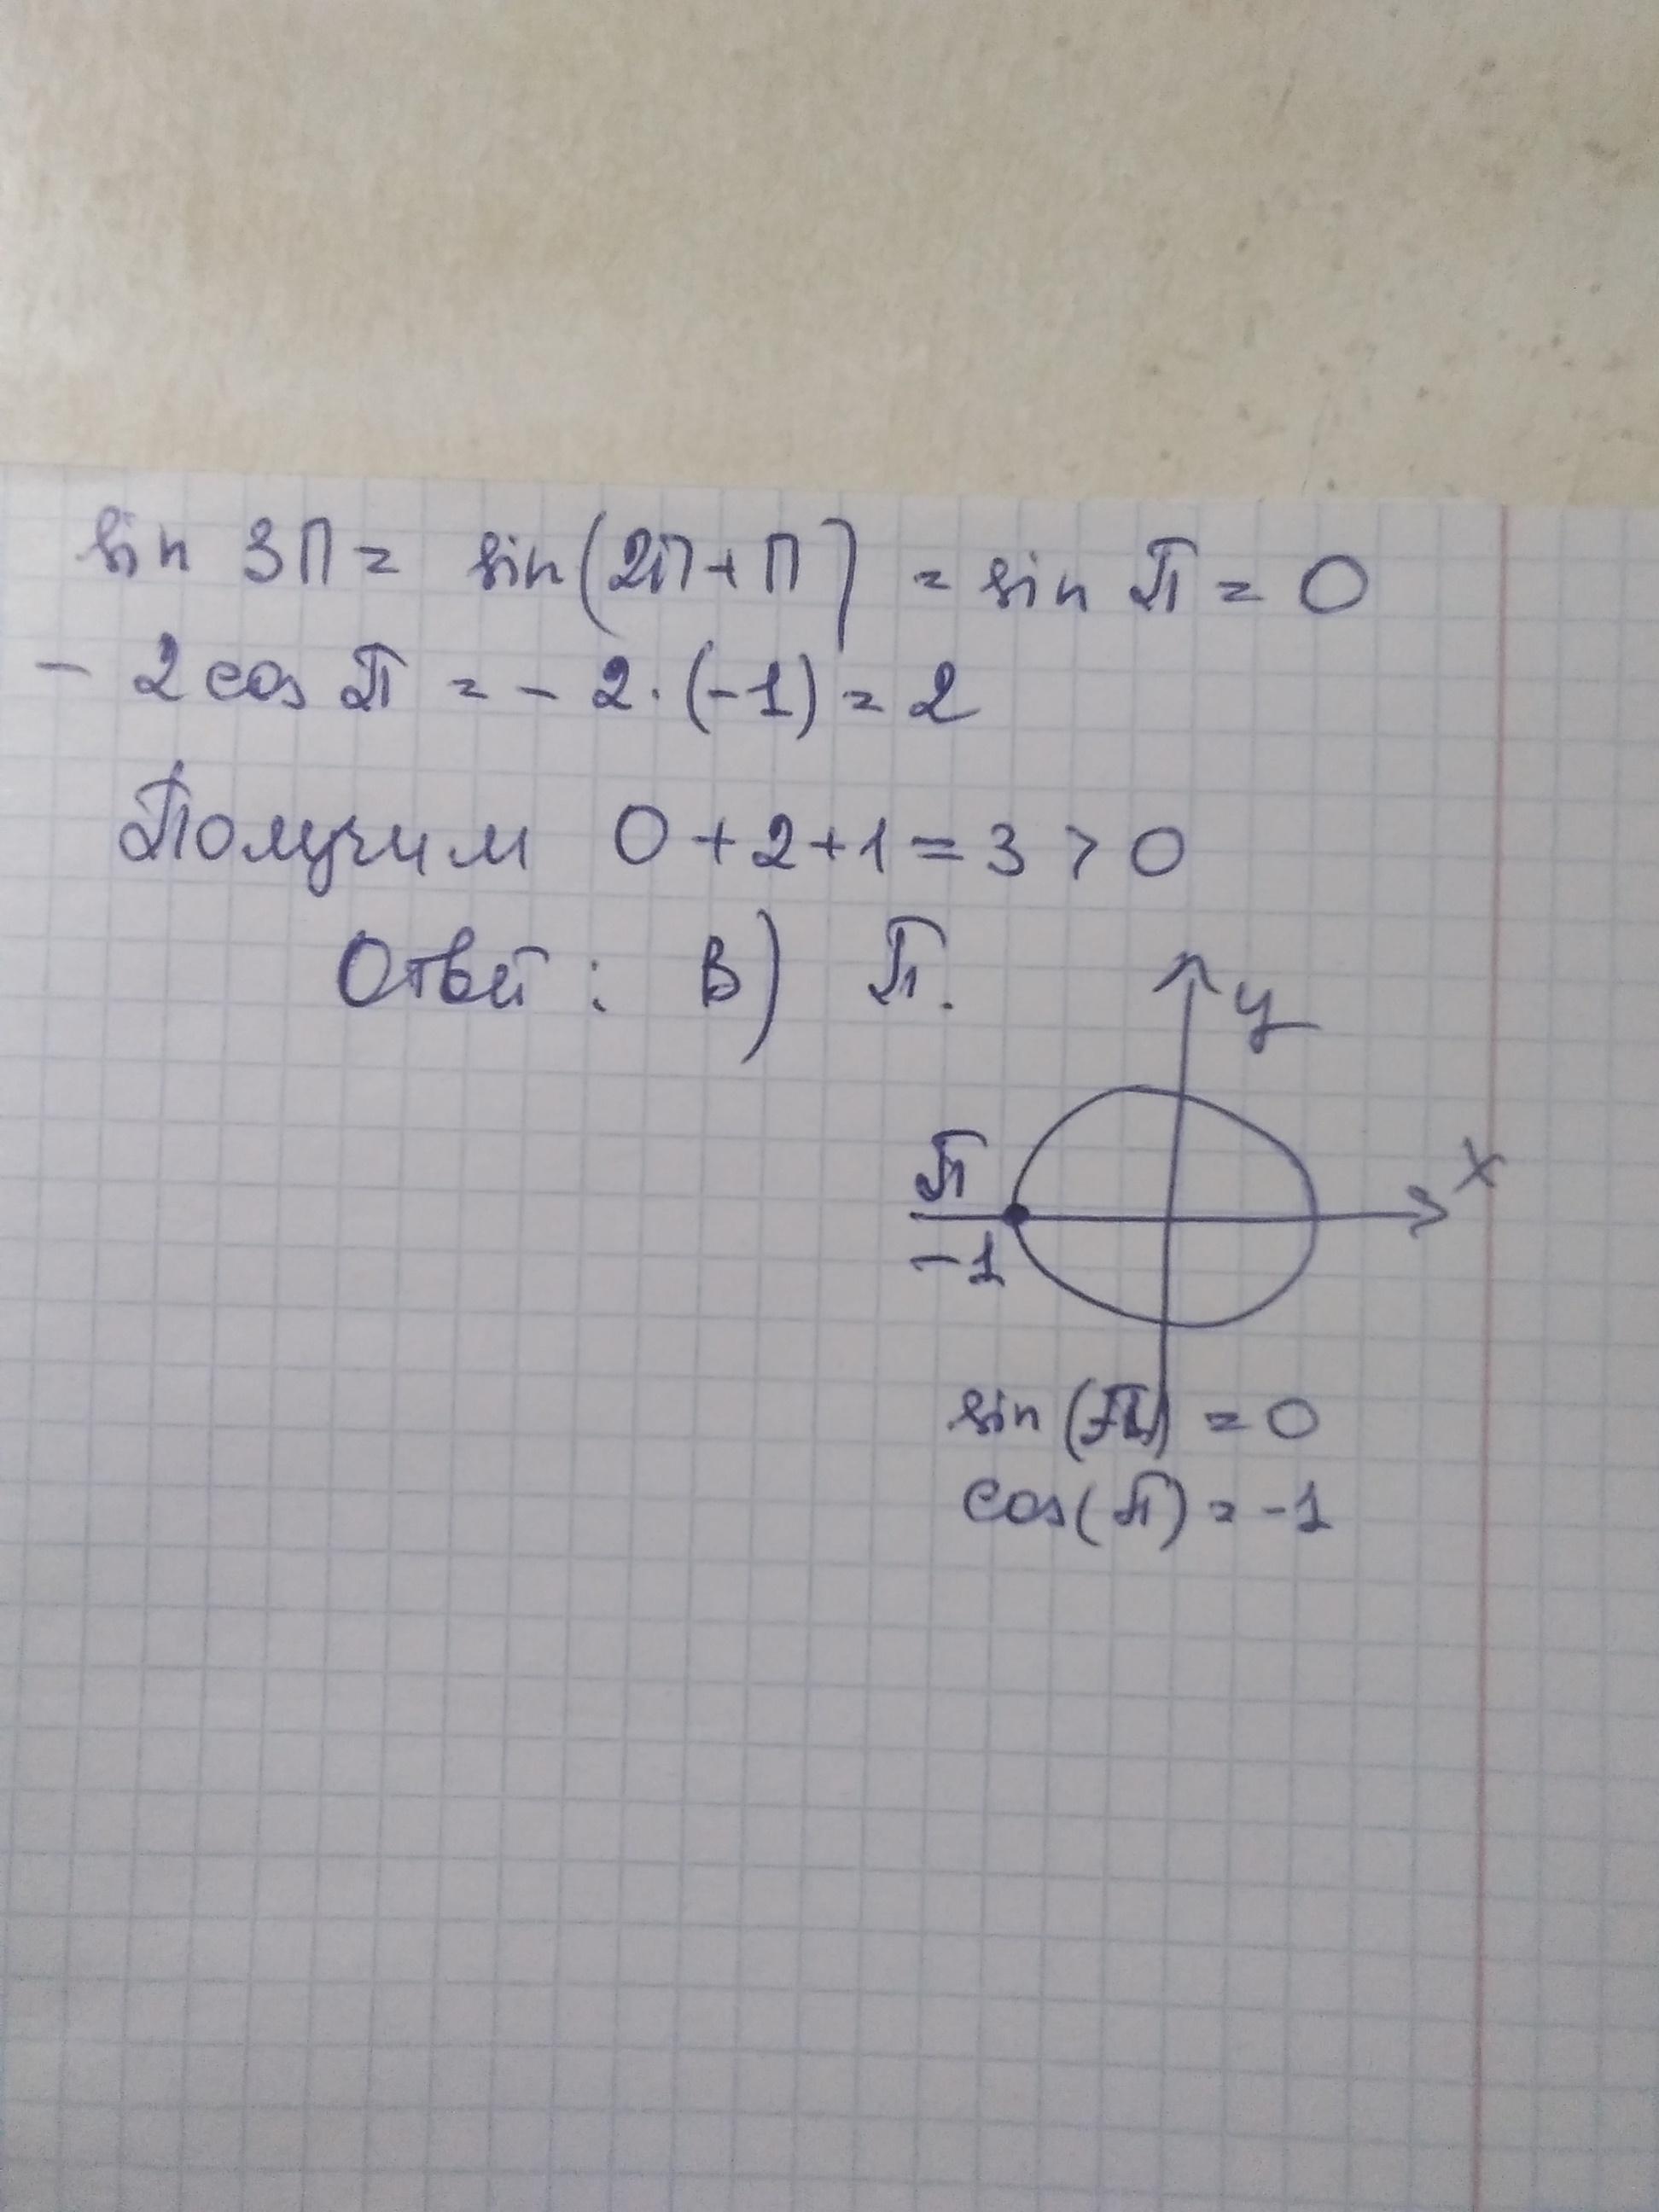 sin 3π = sin(2π + π) = sin π = 0
- 2 cos π = - 2 · (-1) = 2
Получим 0 + 2 + 1 = 3 > 0
Ответ: В) π.
y
π
x
-1
sin (π) = 0
cos(π) = -1